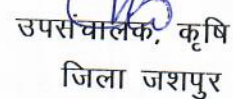 उपसंचालक, कृषि
जिला जशपुर